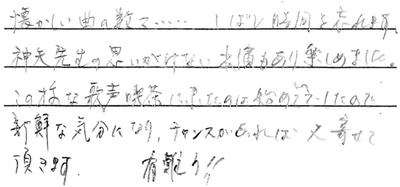 懐かしい曲の数で…… しばし時間を忘れます。
神矢先生の思いがけない出演もあり楽しめました。
この様な歌声喫茶に来たのは始めてでしたので
新鮮な気分になり、チャンスがあれば又寄せて
頂きます。 有難う!!